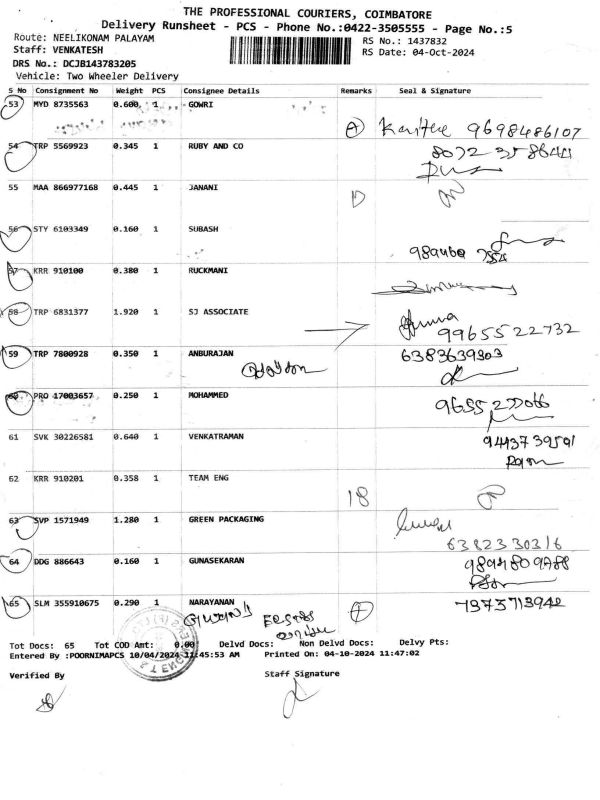 THE PROFESSIONAL COURIERS, COIMBATORE
Delivery Runsheet - PCS - Phone No.:0422-3505555 - Page No.:5
Route: NEELIKONAM PALAYAM RS No.: 1437832
Staff: VENKATESH RS Date: 04-Oct-2024
DRS No.: DCJB143783205
Vehicle: Two Wheeler Delivery
S No Consignment No Weight PCS Consignee Details Remarks Seal & Signature
53 MYD 8735563 0.600 1 GOWRI
9698486107
54 TRP 5569923 0.345 1 RUBY AND CO
55 MAA 866977168 0.445 1 JANANI
56 STY 6103349 0.160 1 SUBASH
57 KRR 910100 0.380 1 RUCKMANI
58 TRP 6831377 1.920 1 SJ ASSOCIATE
9965522732
59 TRP 7800928 0.350 1 ANBURAJAN 6383639303
60 PRO 17003657 0.250 1 MOHAMMED
61 SVK 30226581 0.640 1 VENKATRAMAN
62 KRR 910201 0.358 1 TEAM ENG
18
63 SVP 1571949 1.280 1 GREEN PACKAGING
6382330316
64 DDG 886643 0.160 1 GUNASEKARAN
65 SLM 355910675 0.290 1 NARAYANAN 7373713942
Tot Docs: 65 Tot COD Amt: 0.00 Delvd Docs: Non Delvd Docs: Delvy Pts:
Entered By :POORNIMAPCS 10/04/2024 11:45:53 AM Printed On: 04-10-2024 11:47:02
Verified By Staff Signature